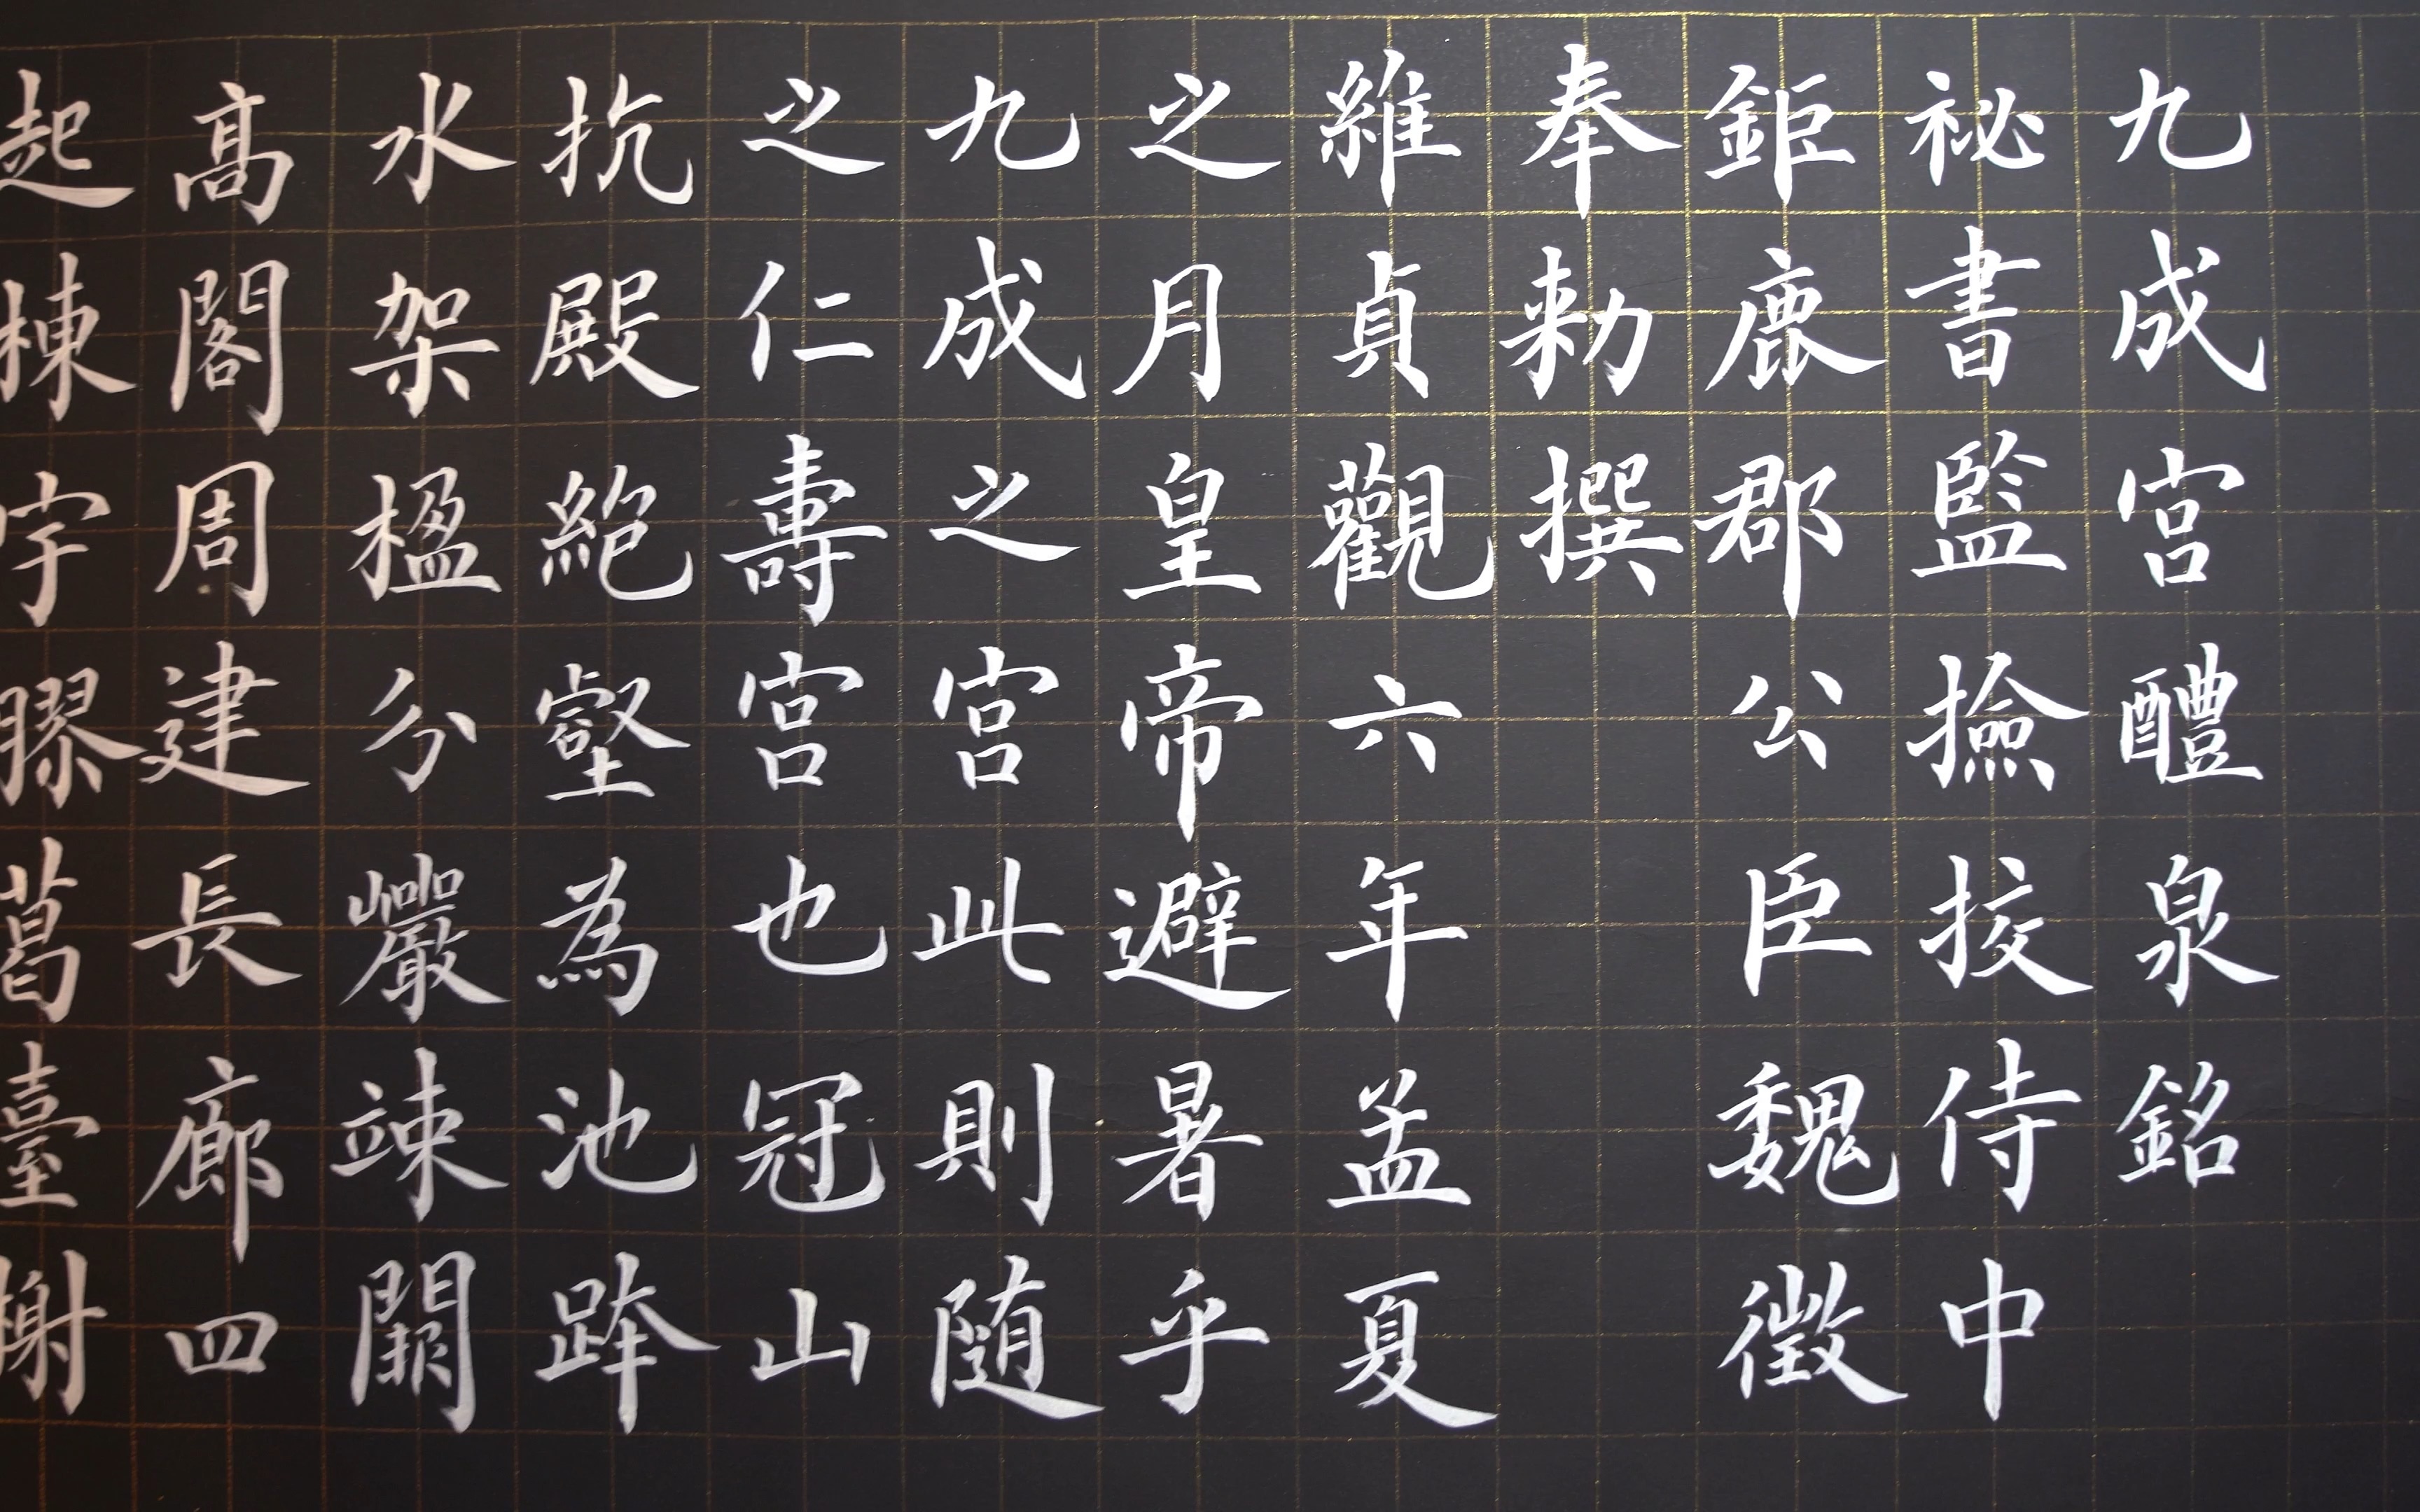 九成宮醴泉銘
祕書監撿挍侍中
鉅鹿郡公臣魏徵
奉勑撰
維貞觀六年孟夏
之月皇帝避暑乎
九成之宮此則随
之仁壽宮也冠山
抗殿絶壑為池跨
水架楹分巖竦闕
高閣周建長廊四
起棟宇膠葛臺榭